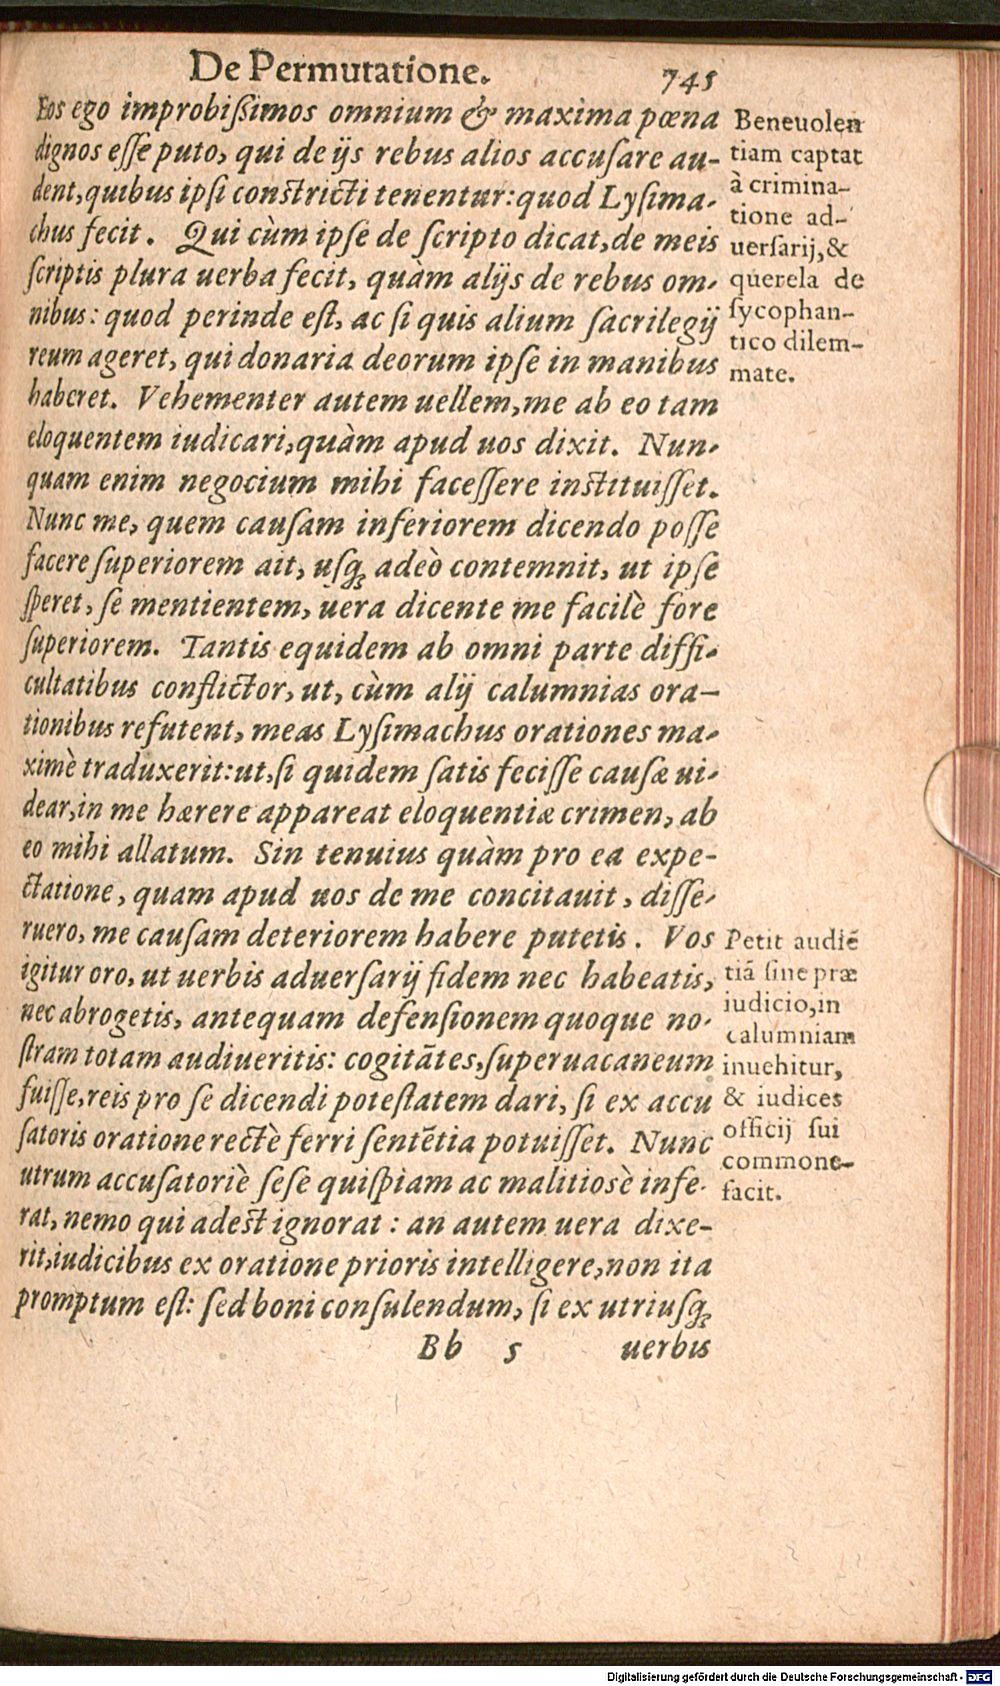 De Permutatione. 745
Eos ego improbißimos omnium & maxima pœna
dignos esse puto, qui de ijs rebus alios accusare au-
dent, quibus ipsi constricti tenentur: quod Lysima-
chus fecit. Qui cùm ipse de scripto dicat, de meis
scriptis plura uerba fecit, quàm alijs de rebus om-
nibus: quod perinde est, ac si quis alium sacrilegij
reum ageret, qui donaria deorum ipse in manibus
haberet. Vehementer autem uellem, me ab eo tam
eloquentem iudicari, quàm apud uos dixit. Nun-
quam enim negocium mihi facessere instituisset.
Nunc me, quem causam inferiorem dicendo posse
facere superiorem ait, usq; adeò contemnit, ut ipse
speret, se mentientem, uera dicente me facilè fore
superiorem. Tantis equidem ab omni parte diffi-
cultatibus conflictor, ut, cùm alij calumnias ora-
tionibus refutent, meas Lysimachus orationes ma-
ximè traduxerit: ut, si quidem satis fecisse causæ ui-
dear, in me hærere appareat eloquentiæ crimen, ab
eo mihi allatum. Sin tenuius quàm pro ea expe-
ctatione, quam apud uos de me concitauit, disse-
ruero, me causam deteriorem habere putetis. Vos
igitur oro, ut uerbis aduersarij fidem nec habeatis,
nec abrogetis, antequam defensionem quoque no-
stram totam audiueritis: cogitātes, superuacaneum
fuisse, reis pro se dicendi potestatem dari, si ex accu
satoris oratione rectè ferri sentētia potuisset. Nunc
utrum accusatoriè sese quispiam ac malitiosè infe-
rat, nemo qui adest ignorat: an autem uera dixe-
rit, iudicibus ex oratione prioris intelligere, non ita
promptum est: sed boni consulendum, si ex utriusq;
Bb 5 uerbis
Beneuolen
tiam captat
à crimina-
tione ad-
uersarij, &
querela de
sycophan-
tico dilem-
mate.
Petit audiē
tiā sine præ
iudicio, in
calumniam
inuehitur,
& iudices
officij sui
commone-
facit.
Digitalisierung gefördert durch die Deutsche Forschungsgemeinschaft - DFG